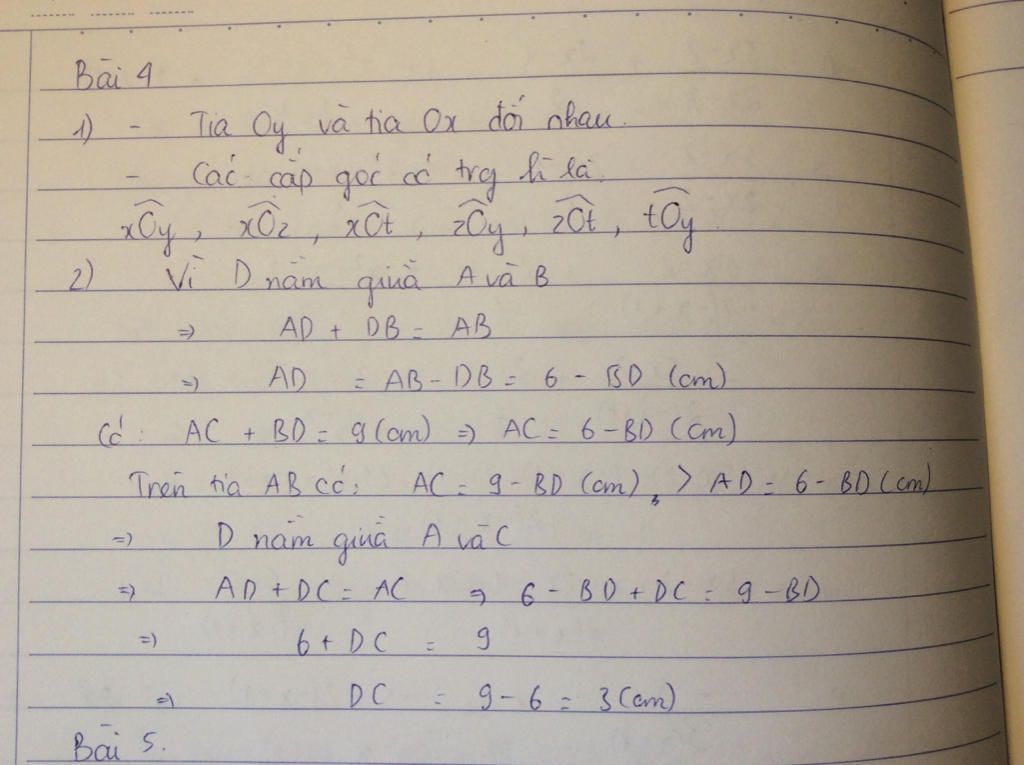 Bài 4
1) - Tia Oy và tia Ox đối nhau.
- Các cặp góc có trg hì là.
xOy, xOz, xOt, zOy, zOt, tOy
2) Vì D nằm giữa A và B
=> AD + DB = AB
=> AD = AB - DB = 6 - BD (cm)
Có: AC + BD = 9 (cm) => AC = 6 - BD (cm)
Trên tia AB có: AC = 9 - BD (cm), > AD = 6 - BD (cm)
=> D nằm giữa A và C
=> AD + DC = AC => 6 - BD + DC = 9 - BD
=> 6 + DC = 9
=> DC = 9 - 6 = 3 (cm)
Bài 5.